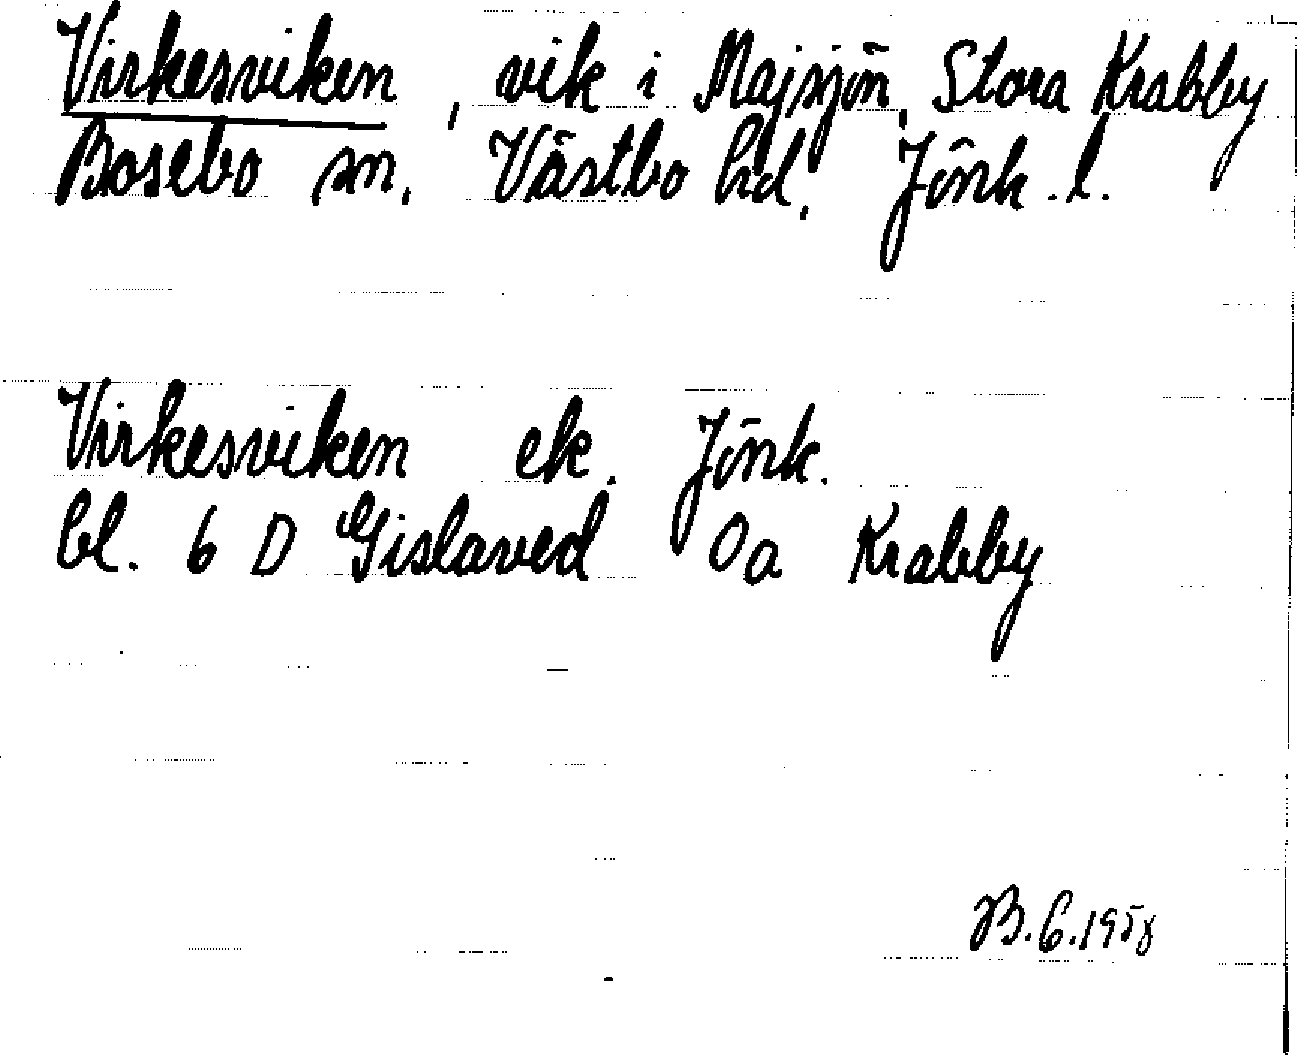 Virkesviken, vik i Majsjön, Stora Krabby
Bosebo sn. Västbo hd, Jönk. l.
Virkesviken ek. Jönk.
bl. 6 D Gislaved 0a Krabby
B.6.1958